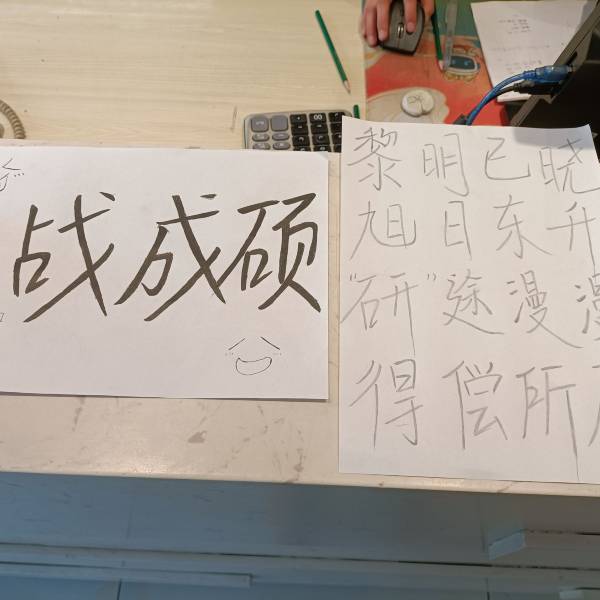 战成硕
黎明已晓
旭日东升
"研"途漫漫
得偿所